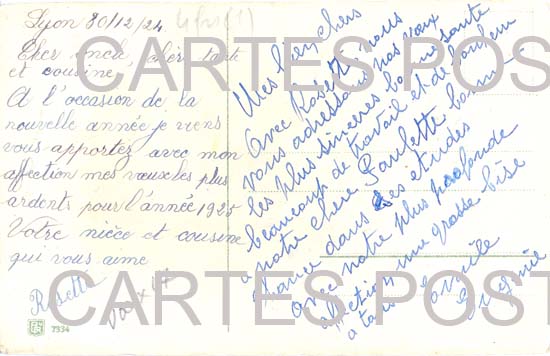 Lyon 30/12/24
Cher oncle, chère tante
et cousine,
A l'occasion de la
nouvelle année je viens
vous apportez avec mon
affection mes vœux les plus
ardents pour l'année 1925
Votre nièce et cousine
qui vous aime
Rosette
7334
Mes bien chers
Avec Rosette, nous
vous adressons nos vœux
les plus sincères bonne santé
beaucoup de travail et de bonheur
a notre chère Paulette bonne
chance dans ses études
avec notre plus profonde
affection une grosse bise
a
Eugénie
CARTES POST
CARTES POST